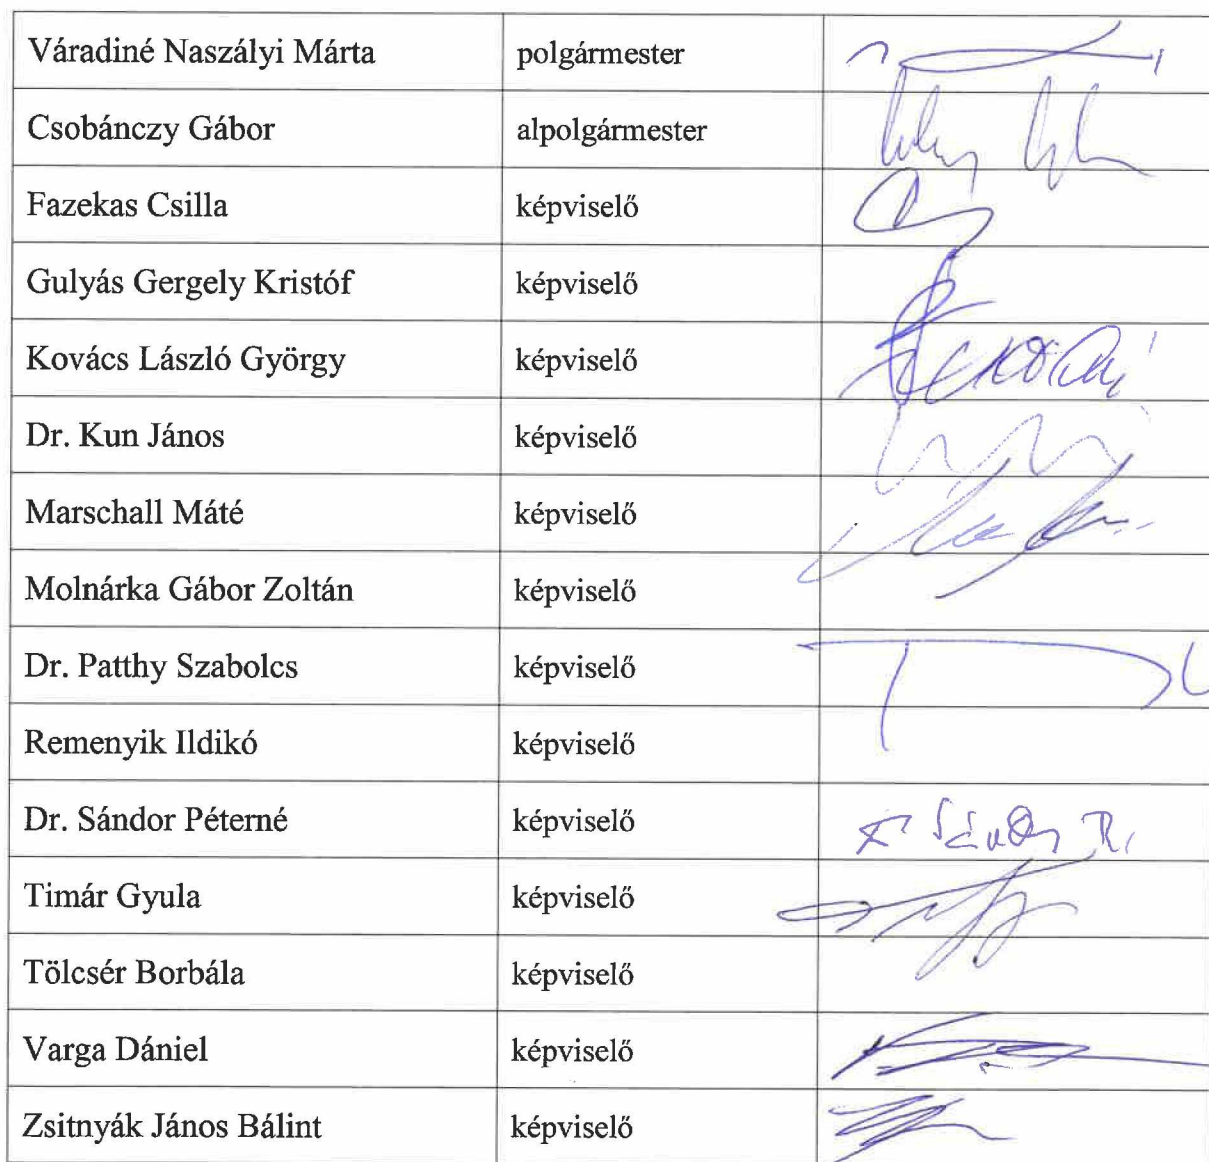 Váradiné Naszályi Márta polgármester
Csobánczy Gábor alpolgármester
Fazekas Csilla képviselő
Gulyás Gergely Kristóf képviselő
Kovács László György képviselő
Dr. Kun János képviselő
Marschall Máté képviselő
Molnárka Gábor Zoltán képviselő
Dr. Patthy Szabolcs képviselő
Remenyik Ildikó képviselő
Dr. Sándor Péterné képviselő
Timár Gyula képviselő
Tölcsér Borbála képviselő
Varga Dániel képviselő
Zsitnyák János Bálint képviselő